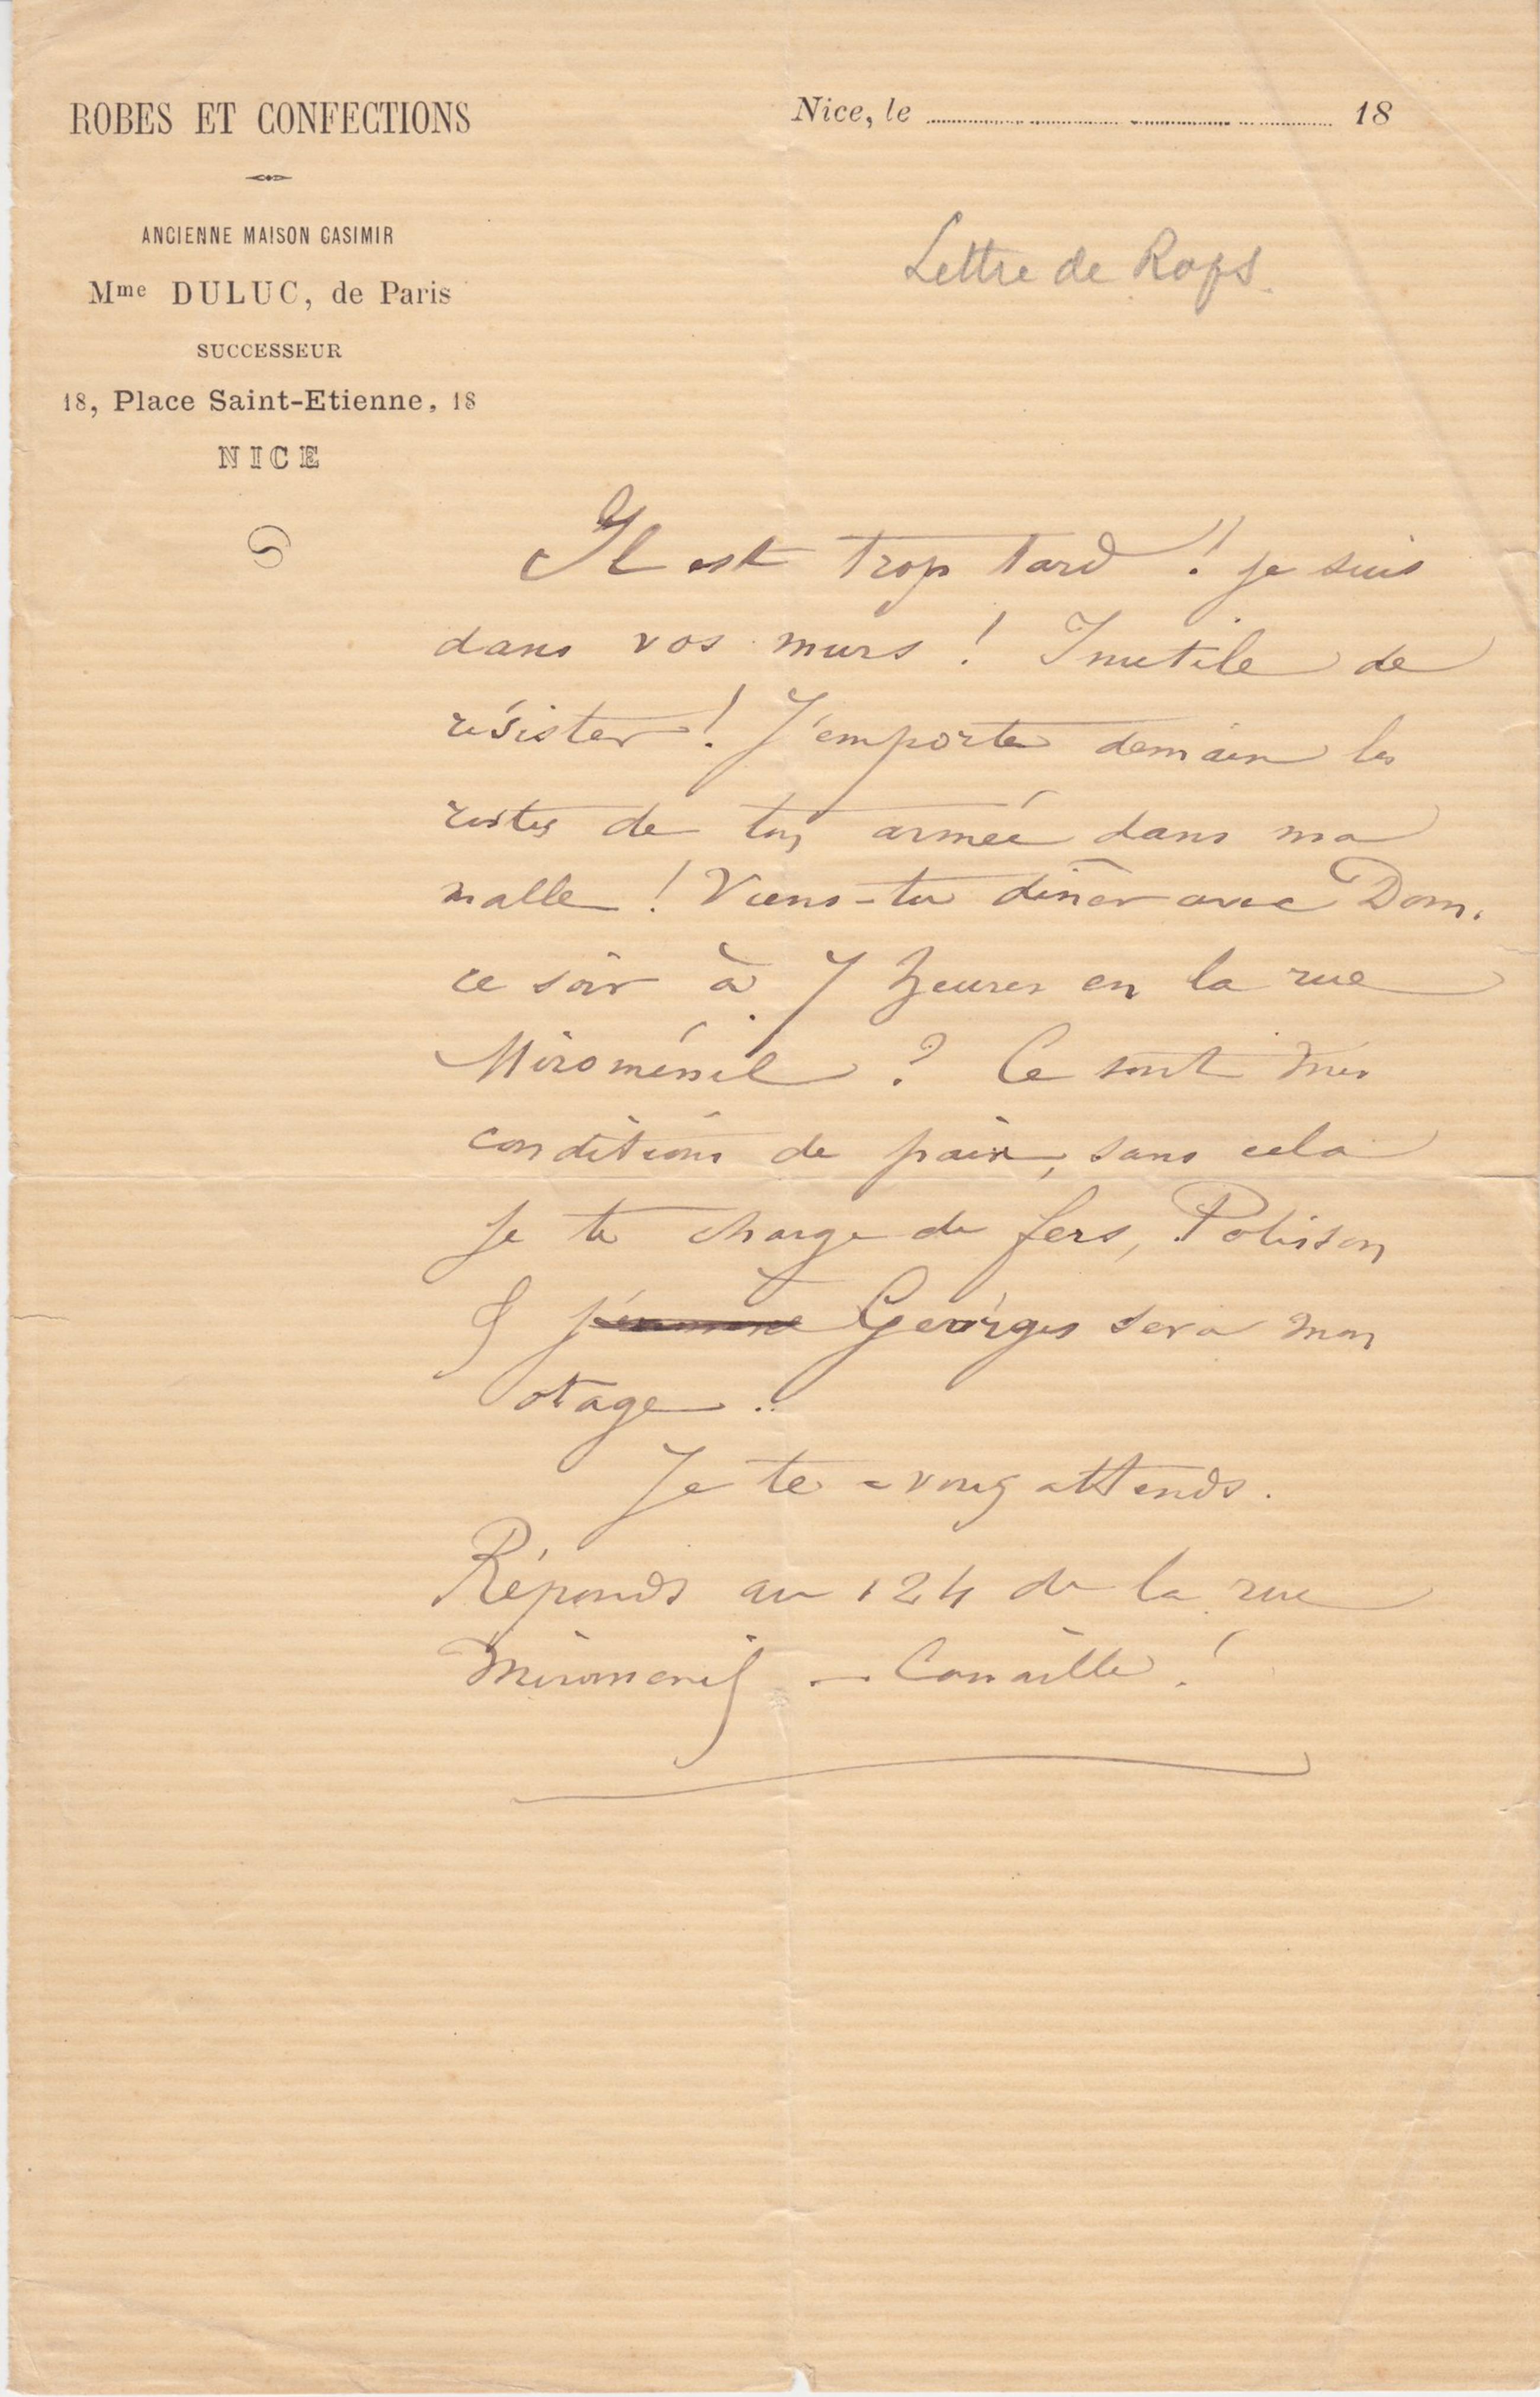 ROBES ET CONFECTIONS
ANCIENNE MAISON CASIMIR
Mme DULUC, de Paris
SUCCESSEUR
18, Place Saint-Etienne, 18
NICE
Nice, le 18
Lettre de Rops.
Il est trop tard !! je suis
dans vos murs ! Inutile de
résister ! J'emporte demain les
restes de ton armée dans ma
malle ! Viens-tu dîner avec Dom.
ce soir à 7 heures en la rue
Miroménil ? Ce sont mes
conditions de paix, sans cela
Je te charge de fers, Polisson
& Georges sera mon
otage !
Je te = vous attends.
Réponds au 124 de la rue
Miromenil — Canaille !